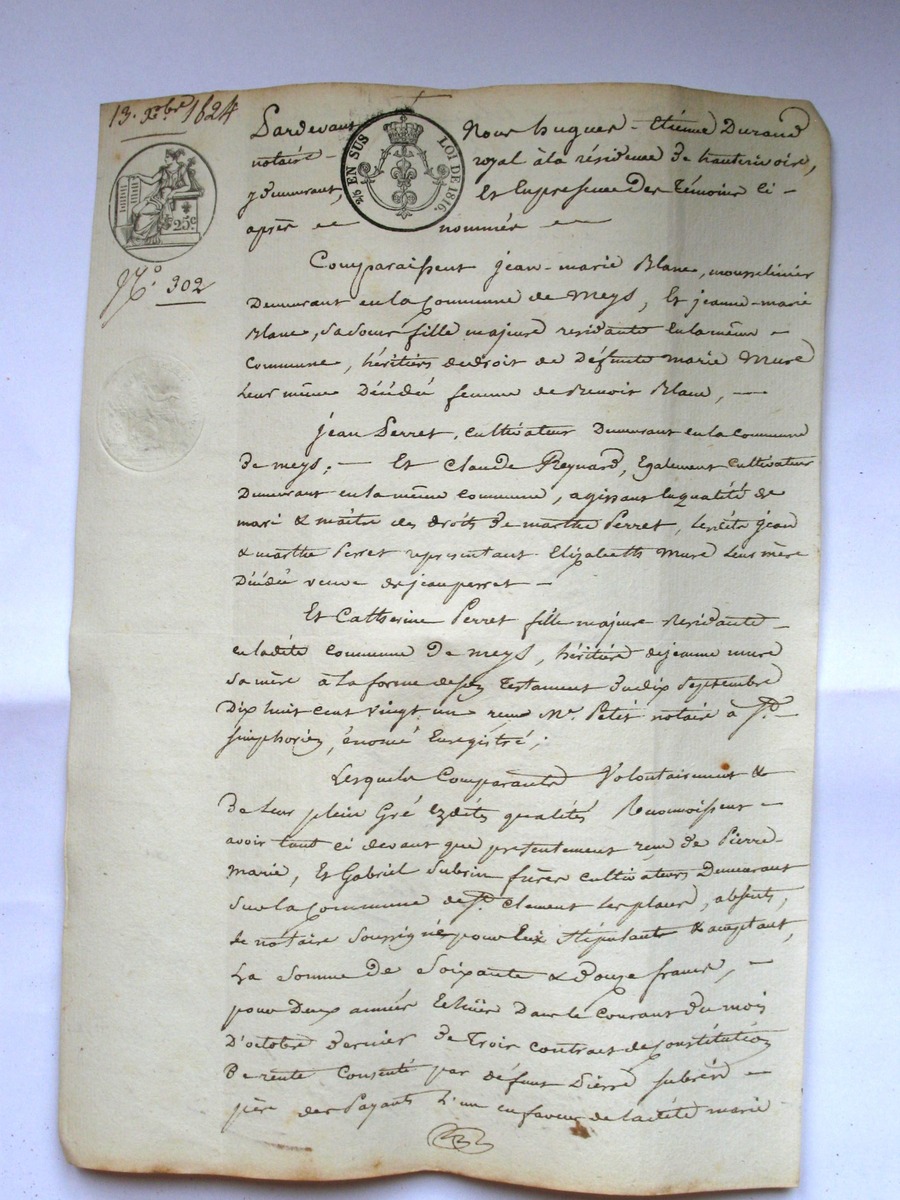 13. Xbre 1824
Pardevant Nous hugues-Etienne Durand
notaire - royal à la résidence de hauterivoire,
y demeurant, Et En presence des Témoins ci-
après nommés
2/5 EN SUS LOI DE 1816.
25c
No. 302
Comparaissent jean-marie Blanc, mousselinier
Demeurant en la commune de Meys, Et jeanne-marie
Blanc, sa sœur fille majeure residante En la même
commune, héritiers de droit de Défunte marie Mure
Leur mère Décédée femme de Benoit Blanc, -
jean Perret, cultivateur Demeurant en la commune
de meys; - Et Claude Reynard, Egalement cultivateur
Demeurant en la même commune, agissant En qualité de
mari & maître des droits de marthe Perret, lesdits jean
& marthe Perret representant Elizabeth Mure leur mère
Décédée veuve de jean perret -
Et Catherine Perret fille majeure Residante
en ladite commune de meys, héritière de jeanne mure
sa mère à la forme de son Testament du dix Septembre
Dix huit cent vingt un reçu Me. Petit notaire à St.
simphorien, Enregistré;
Lesquels Comparants Volontairement &
de leur plein Gré Esdites qualités Reconnoissent
avoir tant ci devant que présentement reçu de Pierre-
marie, Et Gabriel Subrin frères cultivateurs Demeurant
sur la commune de St. Clement les places, absents,
le notaire Soussigné pour Eux Stipulant & acceptant,
La Somme de Soixante & douze francs, -
pour Deux années Echues Dans le Courant du mois
D'octobre dernier de Trois contrats de constitution
De rente Consenti par défunt Pierre Subrin
père des Payants L'un en faveur de ladite marie